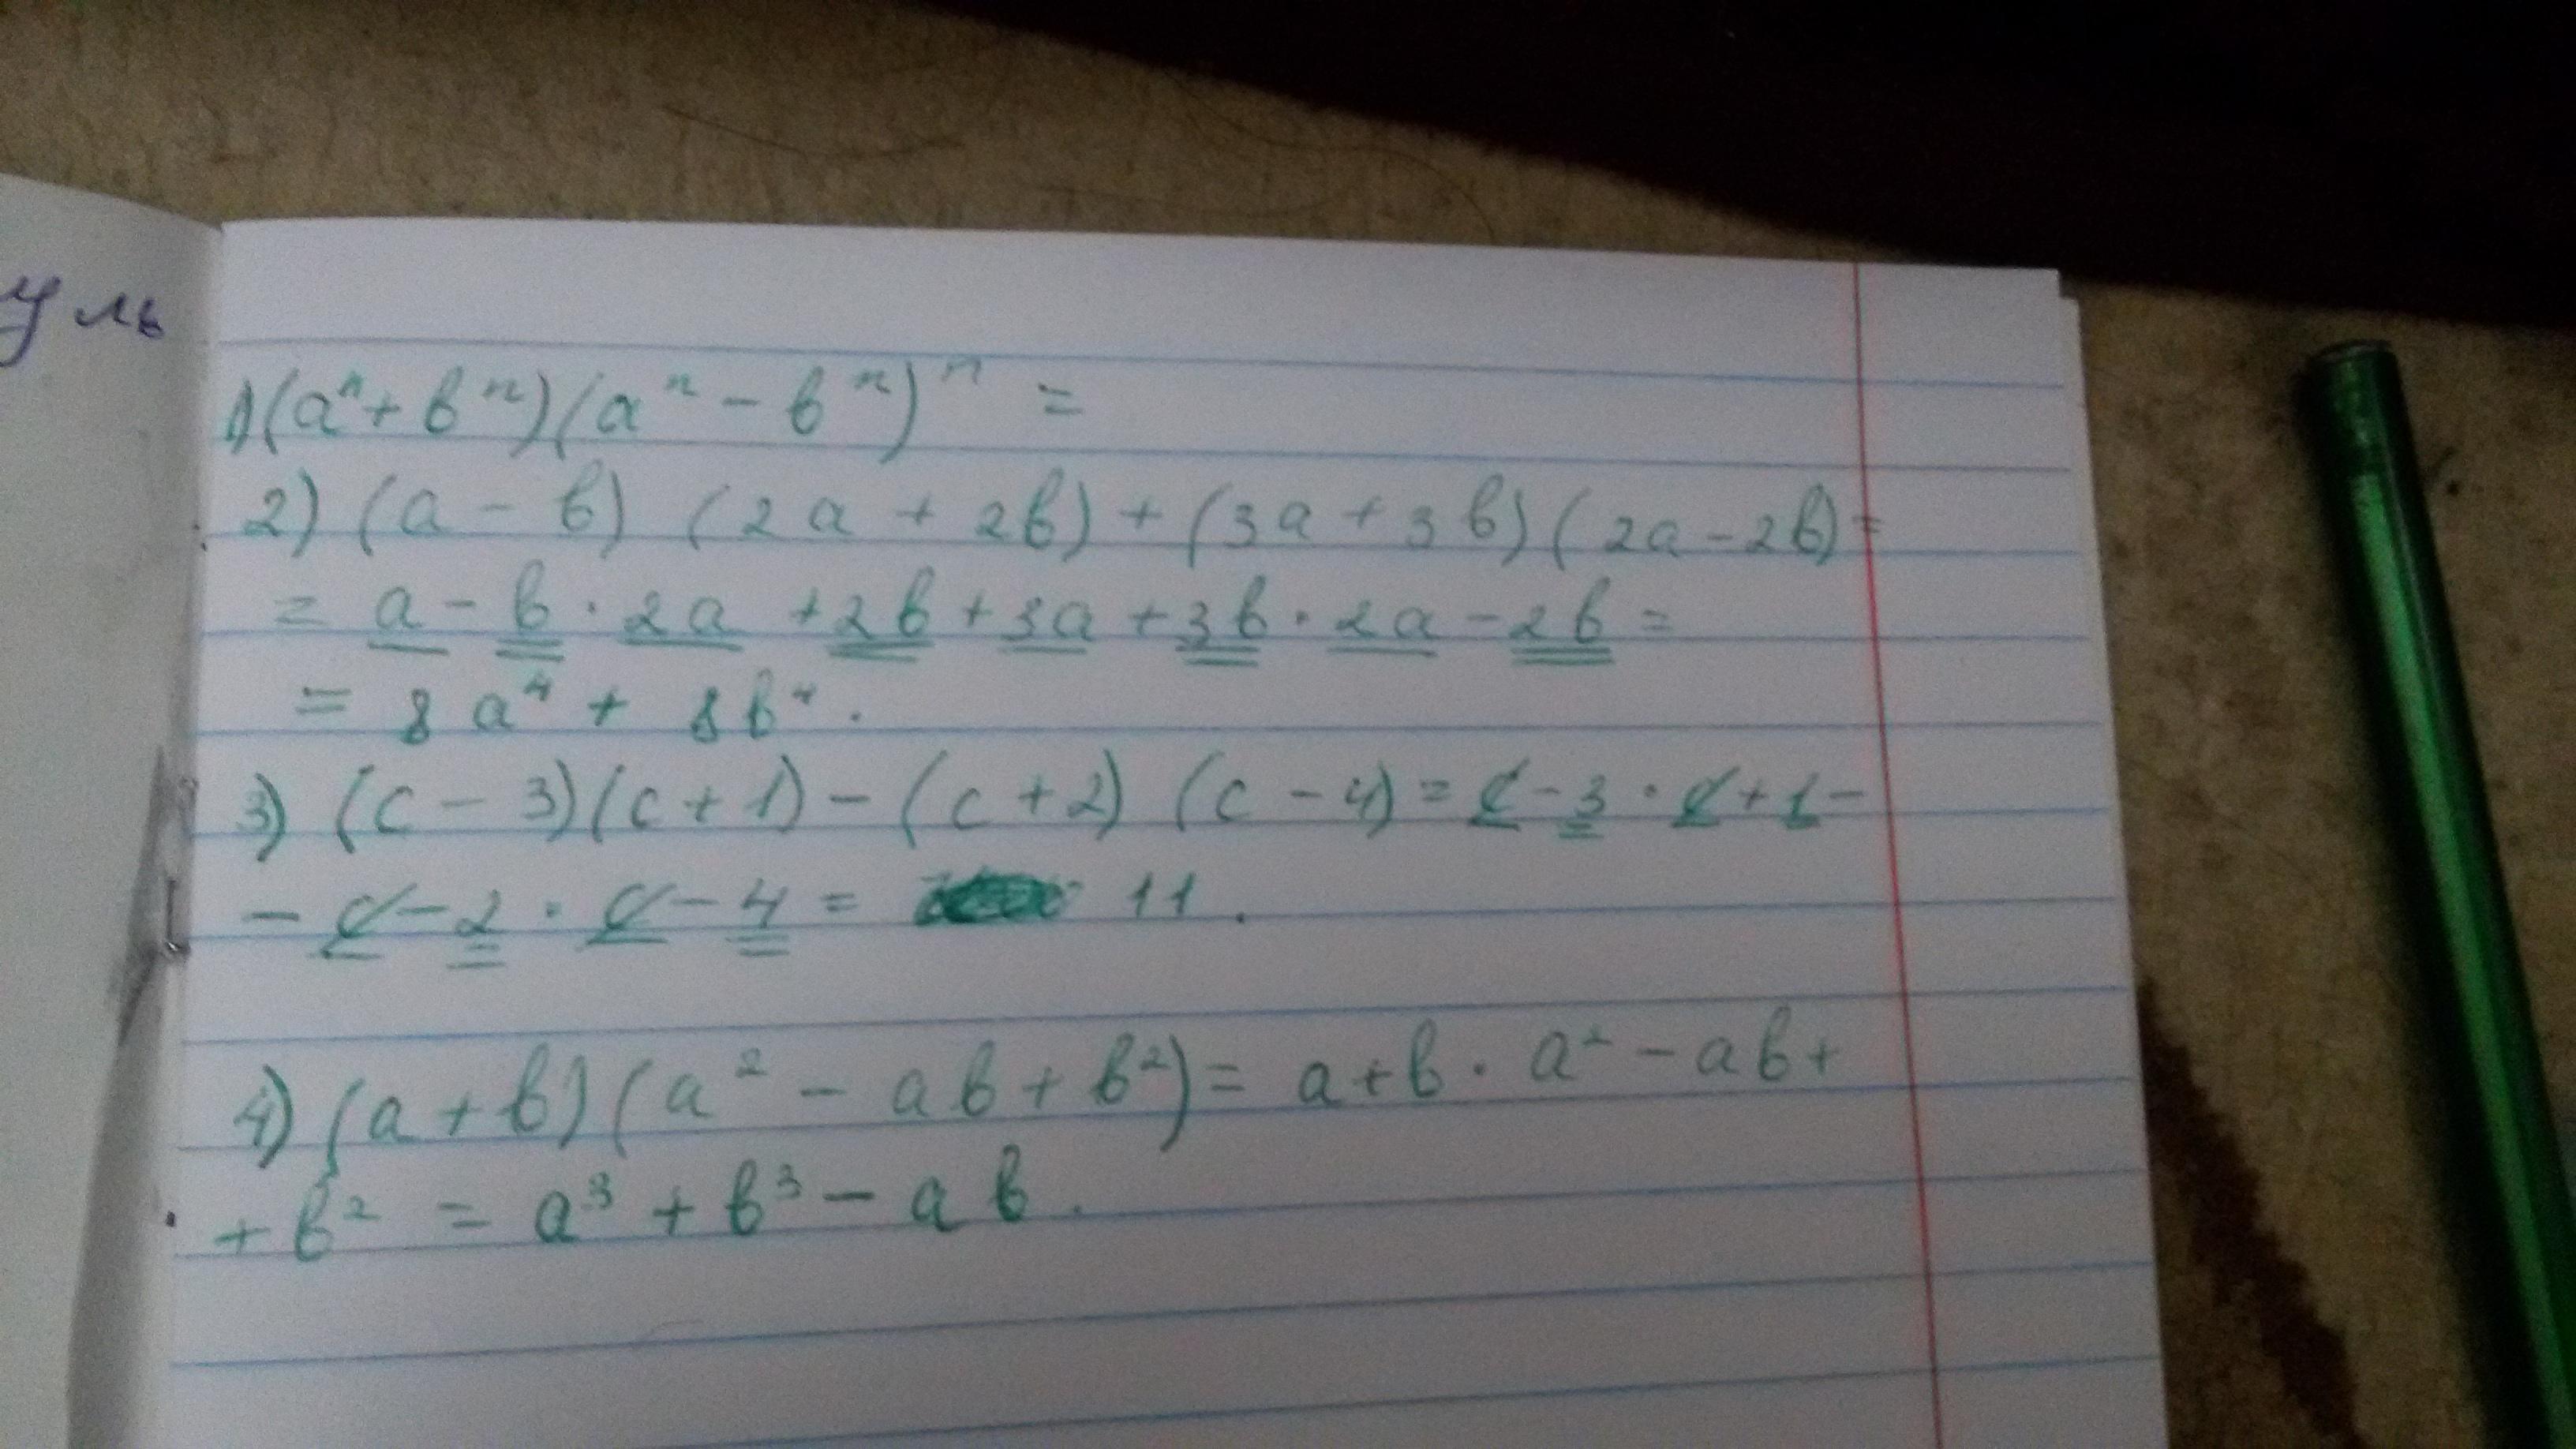 уль
1) (aⁿ + bⁿ)(aⁿ - bⁿ)ⁿ =
2) (a - b) (2a + 2b) + (3a + 3b)(2a - 2b) =
= a - b · 2a + 2b + 3a + 3b · 2a - 2b =
= 8a⁴ + 8b⁴.
3) (c - 3)(c + 1) - (c + 2) (c - 4) = c - 3 · c + 1 -
- c - 2 · c - 4 = 11.
4) (a + b)(a² - ab + b²) = a + b · a² - ab +
+ b² = a³ + b³ - ab.